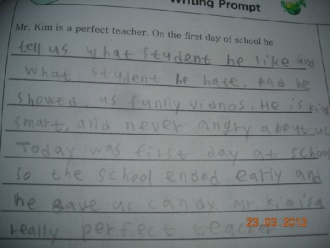 Writing Prompt
Mr. Kim is a perfect teacher. On the first day of school he
tell us what student he like and
what student he hate. And he
showed us funny vidnos. He is kind
smart, and never angry about us
Today was first day at school
so the school ended early and
he gave us candy. Mr. Kim is a
really perfect teacher
23 09 2013